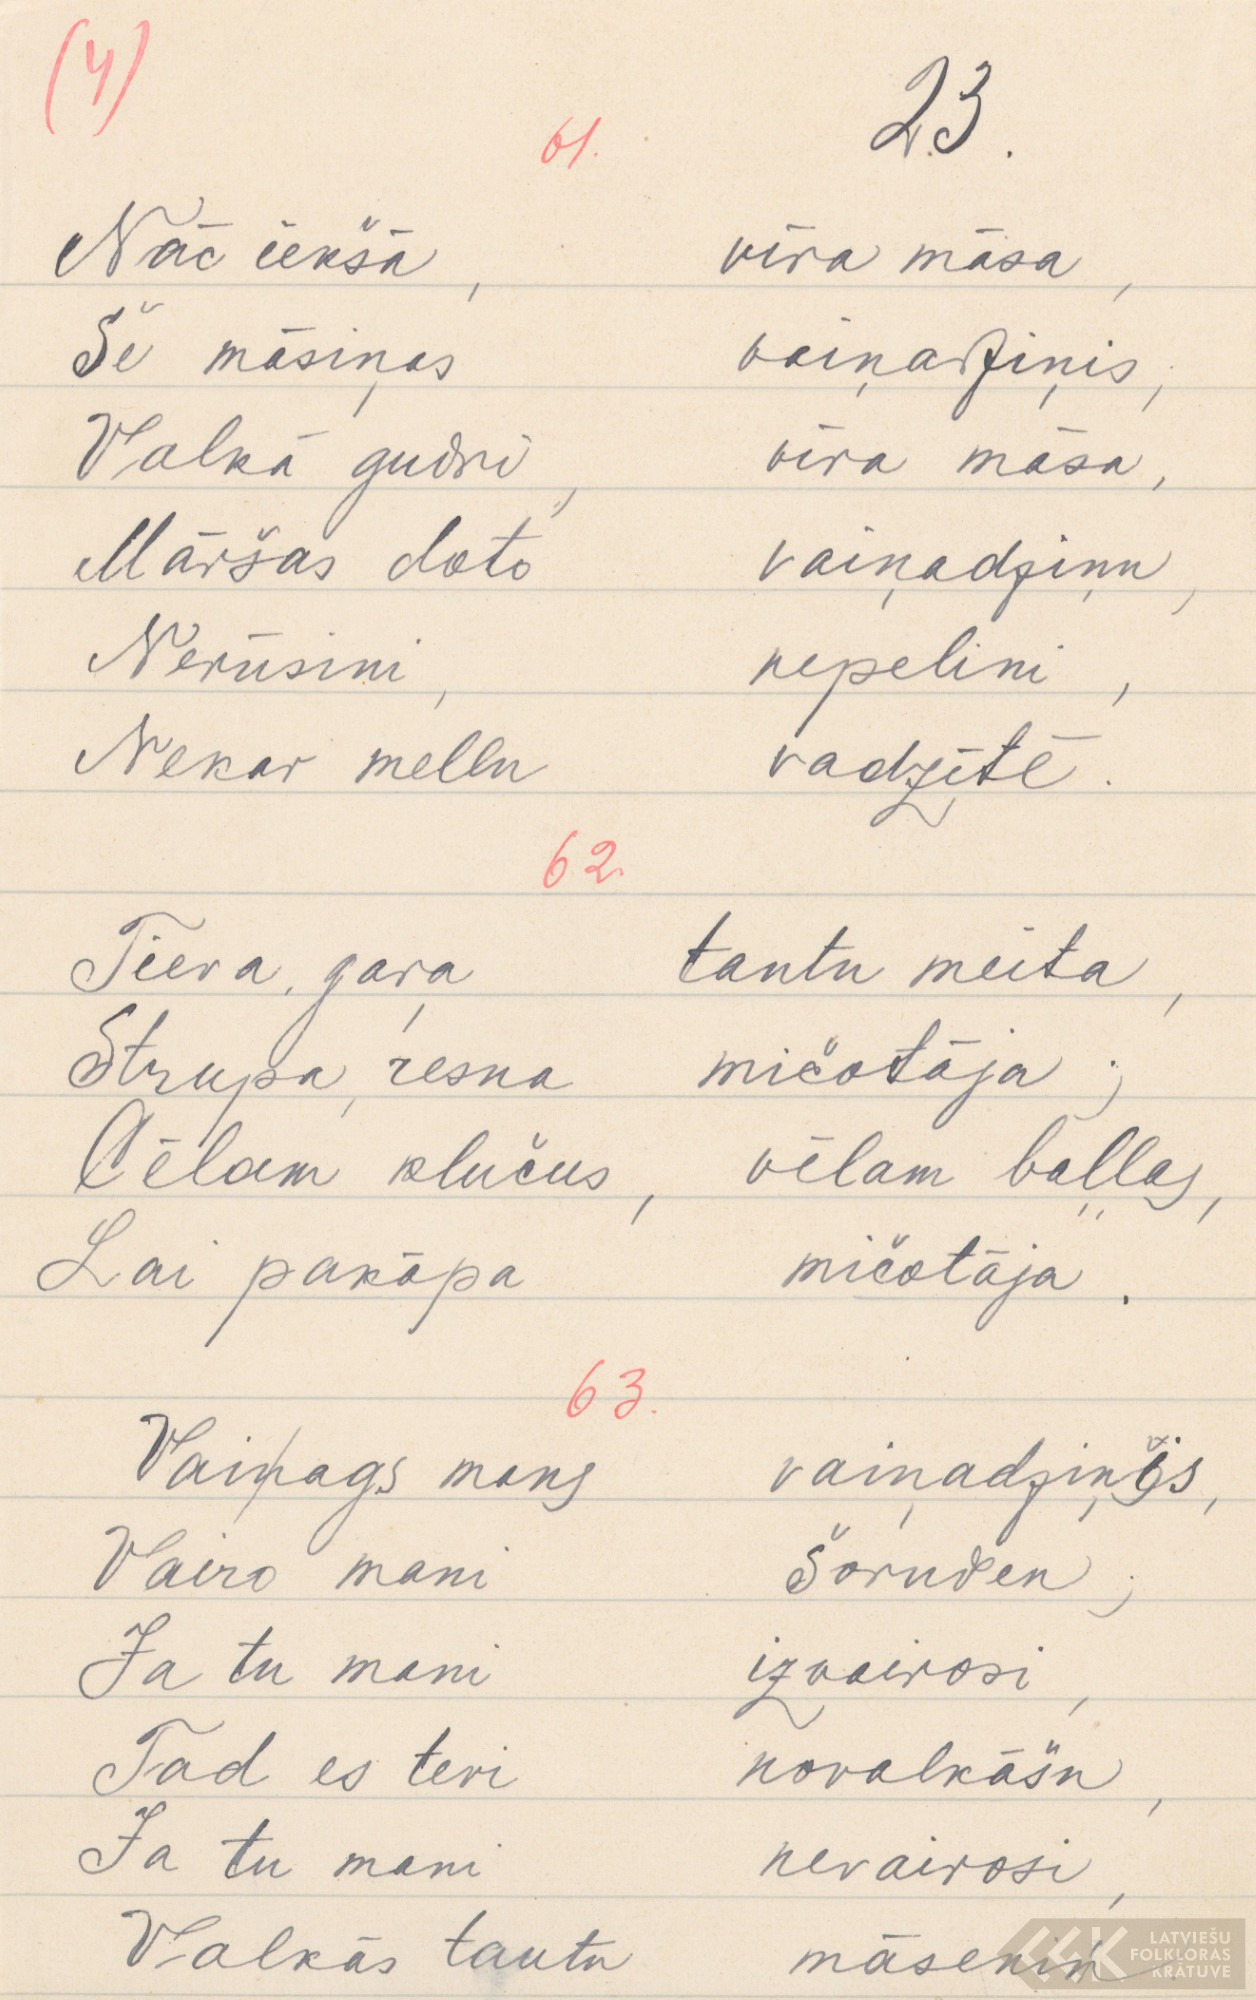 (4)
23.
61.
Nāc iekšā, vīra māsa,
Še māsiņas vaiņadziņis;
Valkā gudri, vīra māsa,
Māršas doto vaiņadziņu,
Nerūsini, nepelini,
Nekar mellu vadzītē.
62.
Tieva, gaŗa tautu meita,
Strupa, resna mičotāja;
Cēlam klučus, vēlam baļļas,
Lai pakāpa mičotāja.
63.
Vainags mans vaiņadziņis,
Vairo mani šoruden;
Ja tu mani izvairosi,
Tad es tevi novalkāšu,
Ja tu mani nevairosi,
Valkās tautu māseniņ
LATVIEŠU
FOLKLORAS
KRĀTUVE